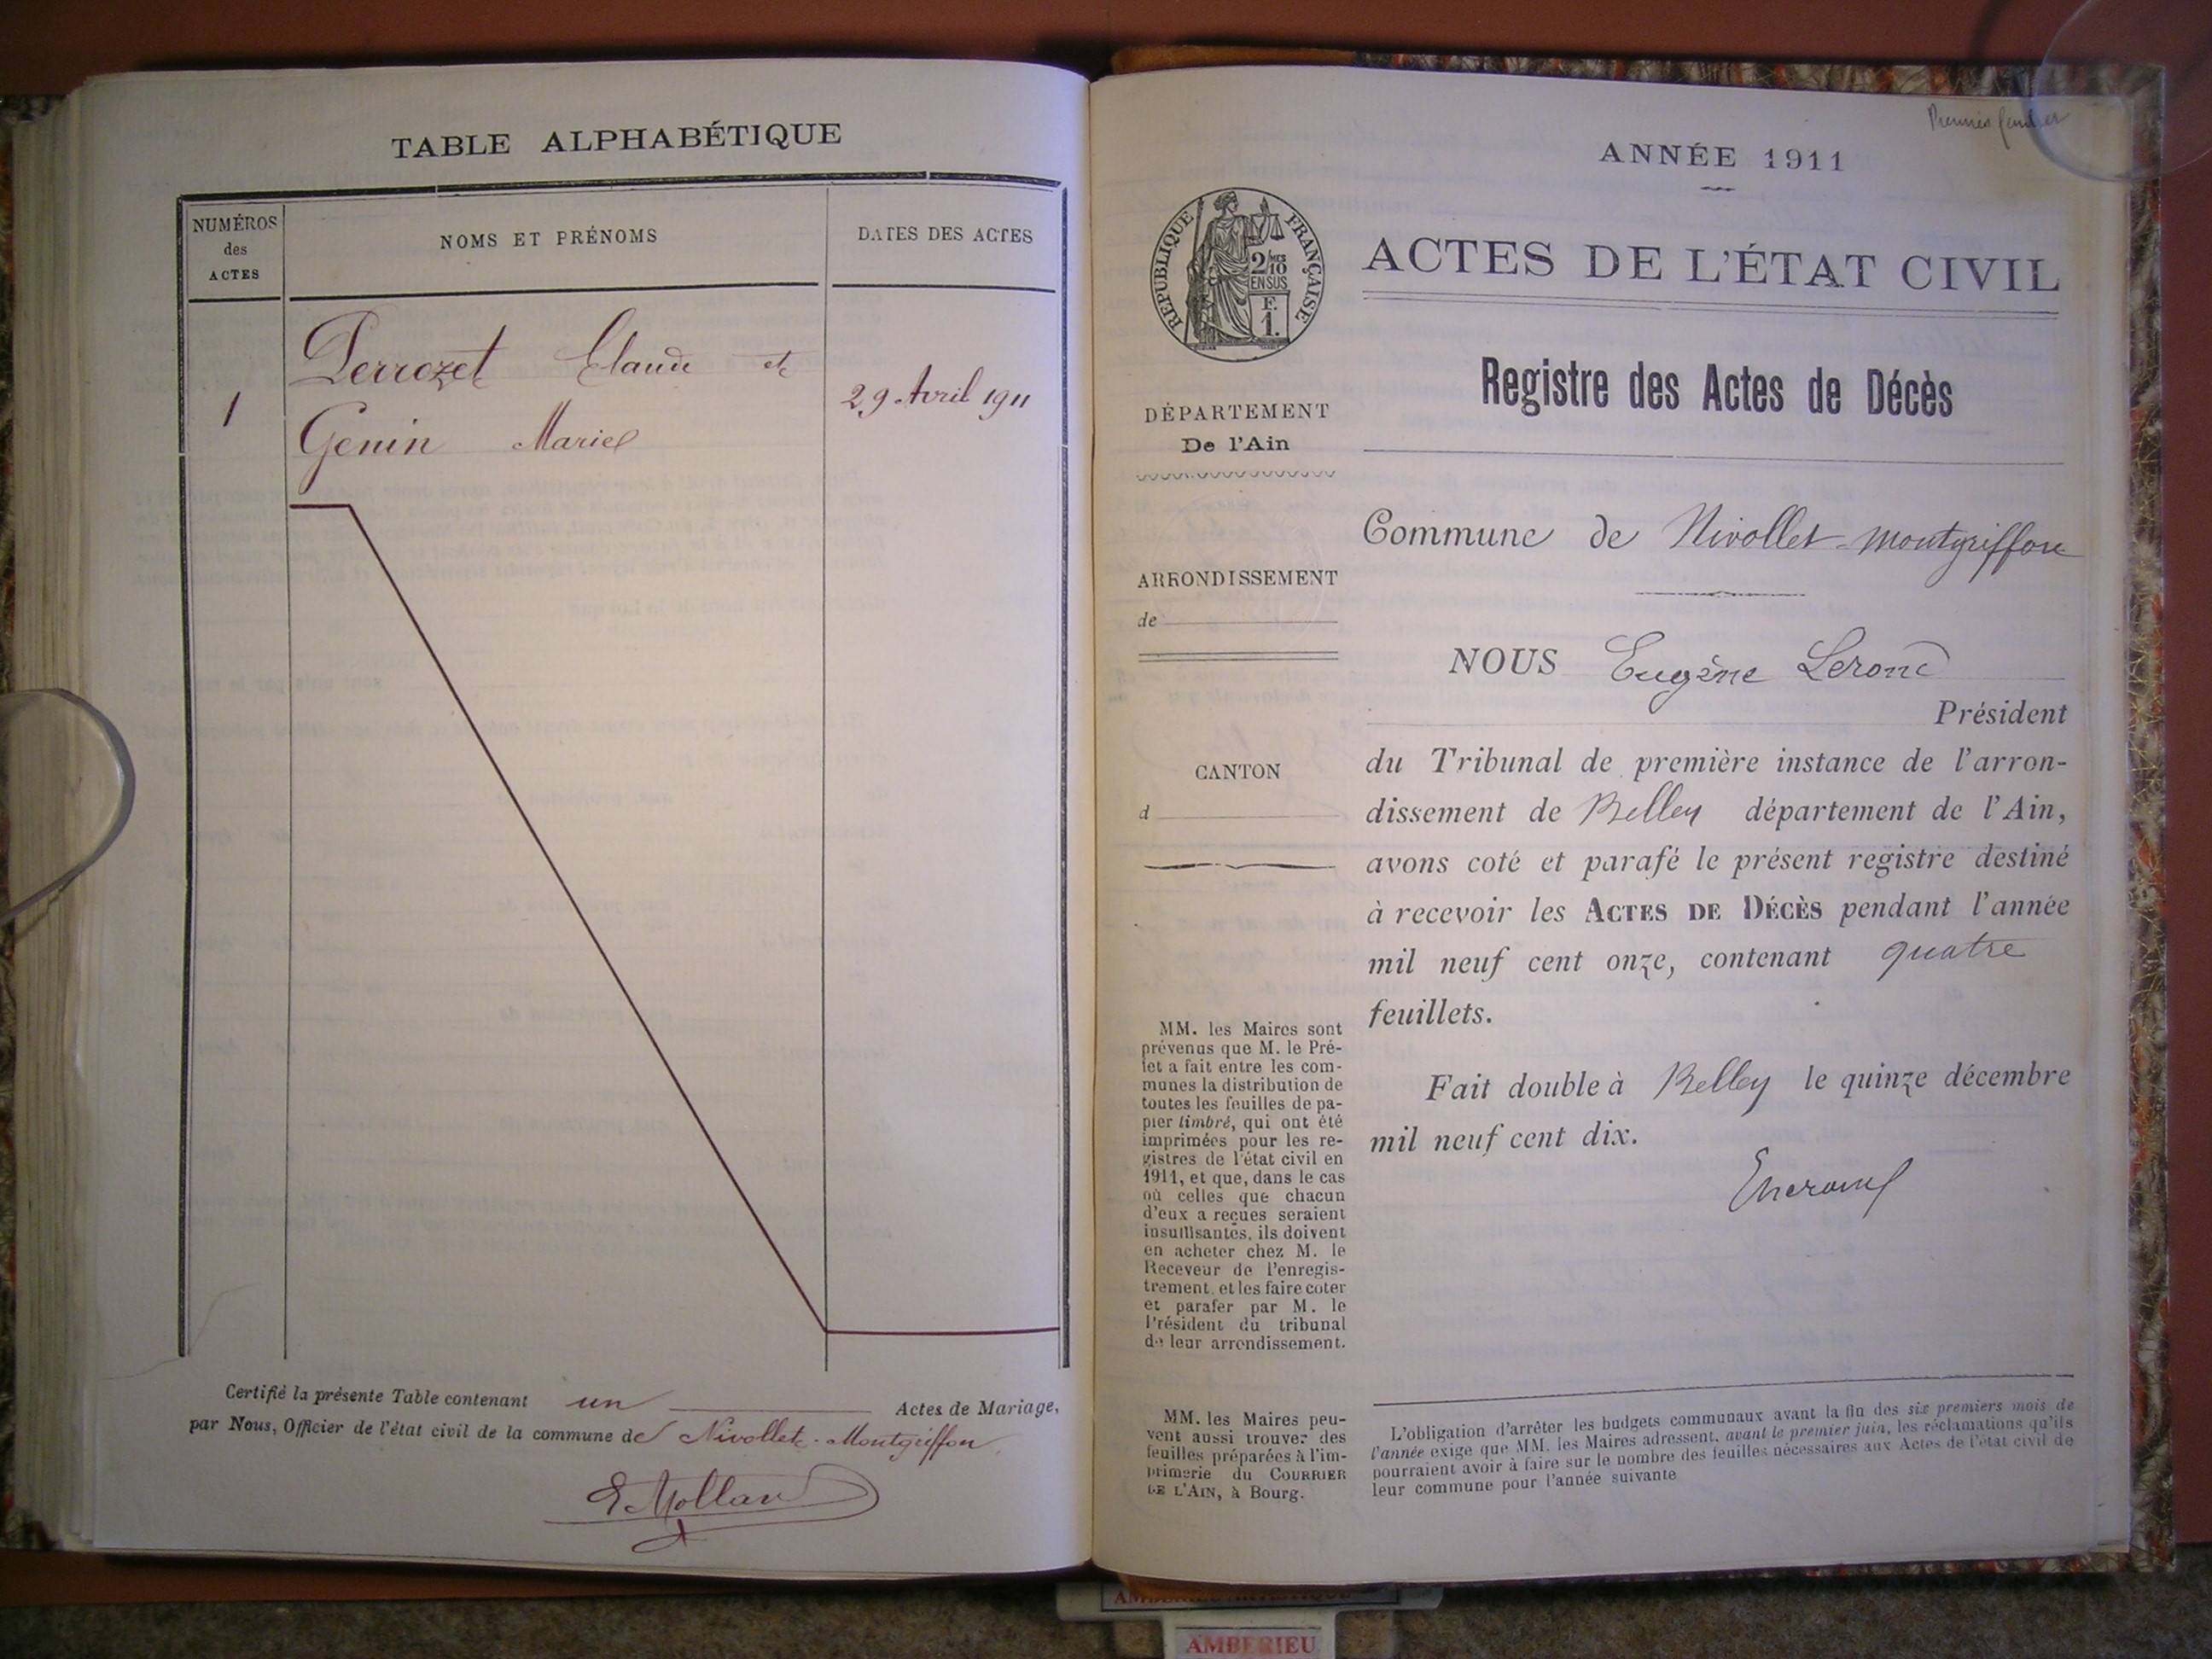 TABLE ALPHABÉTIQUE
NUMÉROS
des
ACTES
NOMS ET PRÉNOMS
DATES DES ACTES
1
Perrozet Claude et
Genin Marie
29 Avril 1911
Certifié la présente Table contenant un Actes de Mariage,
par Nous, Officier de l'état civil de la commune de Nivollet-Montgriffon
E Mollard
Premier feuillet
ANNÉE 1911
RÉPUBLIQUE FRANÇAISE
2/10
EN SUS
F.
1.
ACTES DE L'ÉTAT CIVIL
Registre des Actes de Décès
DÉPARTEMENT
De l'Ain
Commune de Nivollet-Montgriffon
ARRONDISSEMENT
de
NOUS Eugène Lerond
Président
CANTON
d
du Tribunal de première instance de l'arron-
dissement de Belley département de l'Ain,
avons coté et parafé le présent registre destiné
à recevoir les ACTES DE DÉCÈS pendant l'année
mil neuf cent onze, contenant quatre
feuillets.
Fait double à Belley le quinze décembre
mil neuf cent dix.
MM. les Maires sont
prévenus que M. le Pré-
fet a fait entre les com-
munes la distribution de
toutes les feuilles de pa-
pier timbré, qui ont été
imprimées pour les re-
gistres de l'état civil en
1911, et que, dans le cas
où celles que chacun
d'eux a reçues seraient
insuffisantes, ils doivent
en acheter chez M. le
Receveur de l'enregis-
trement, et les faire coter
et parafer par M. le
Président du tribunal
de leur arrondissement.
MM. les Maires peu-
vent aussi trouver des
feuilles préparées à l'im-
primerie du COURRIER
DE L'AIN, à Bourg.
L'obligation d'arrêter les budgets communaux avant la fin des six premiers mois de
l'année exige que MM. les Maires adressent, avant le premier juin, les réclamations qu'ils
pourraient avoir à faire sur le nombre des feuilles nécessaires aux Actes de l'état civil de
leur commune pour l'année suivante
AMBERIEU